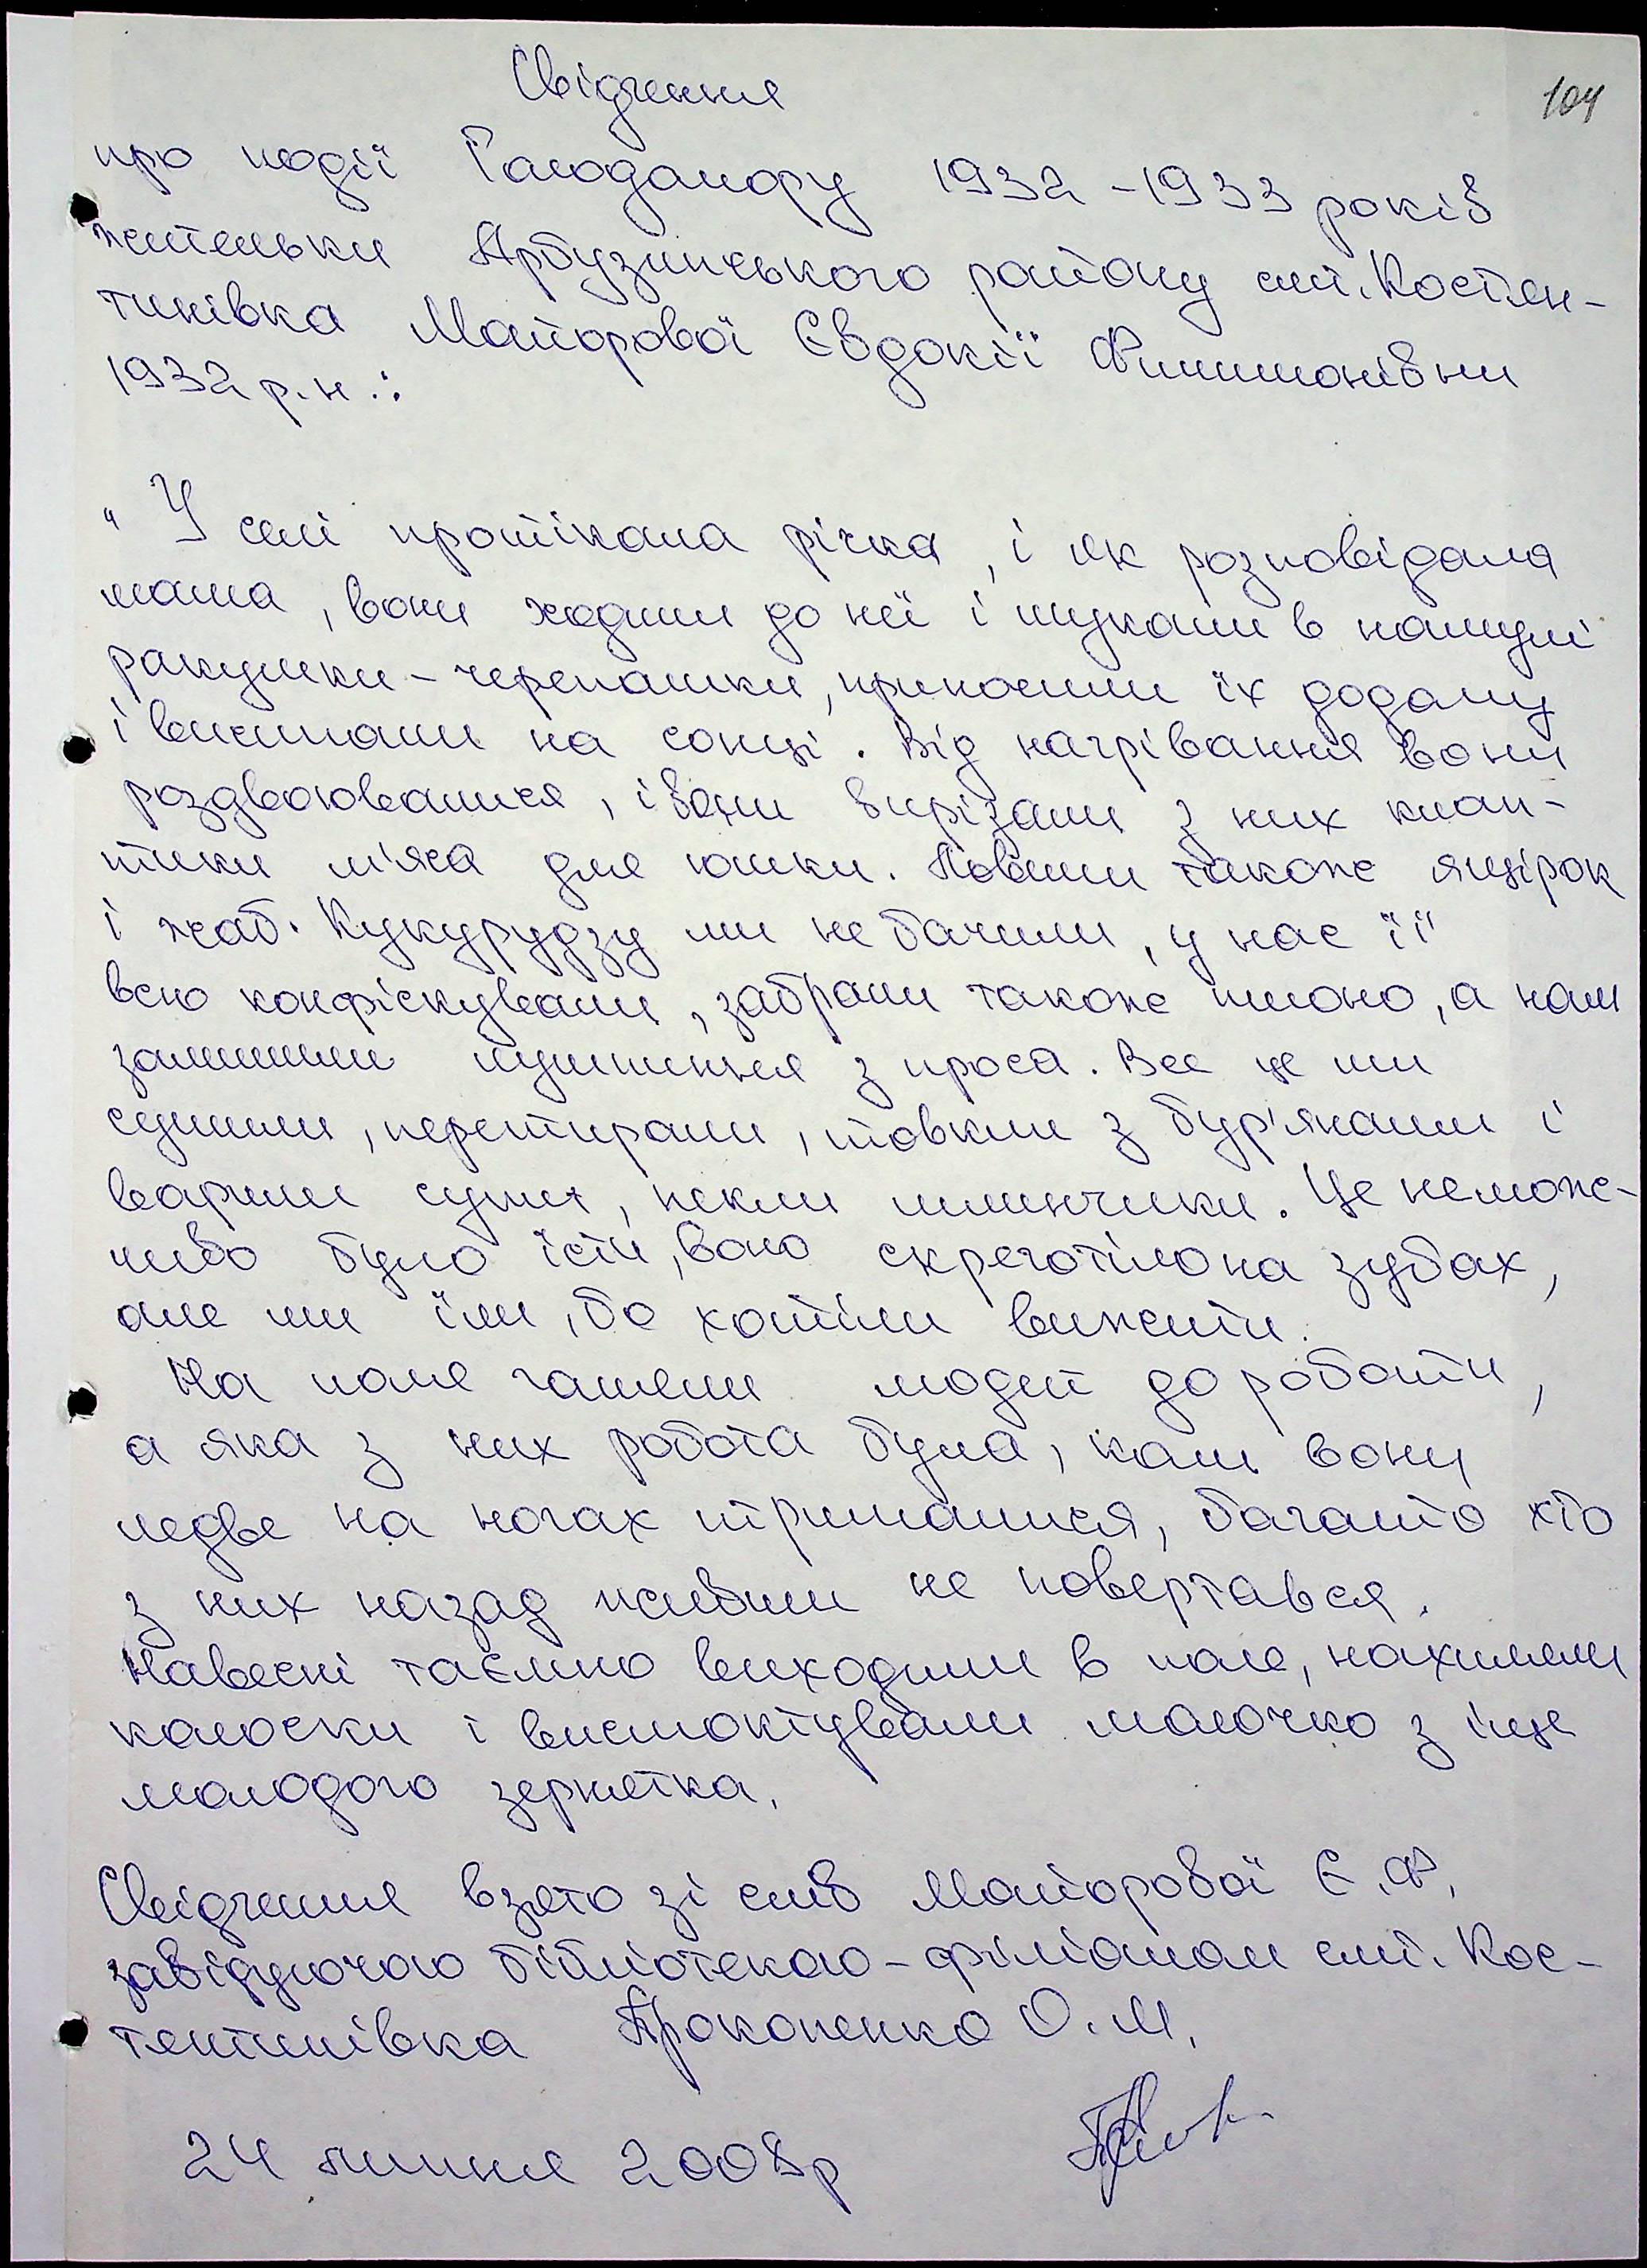 104
Свідчення
про події Голодомору 1932-1933 років
жительки Арбузинського району смт. Костян-
тинівка Майорової Євдокії Филимонівни
1932 р.н.:
"У селі протікала річка, і як розповідала
мама, вони ходили до неї і шукали в намулі
ракушки-черепашки, приносили їх додому
і висипали на сонці. Від нагрівання вони
роздвоювалися, і вони вирізали з них клап-
тики м'яса для юшки. Ловили також ящірок
і жаб. Кукурудзу ми не бачили, у нас її
всю конфіскували, забрали також пшоно, а нам
залишили лушпиння з проса. Все це ми
сушили, перетирали, товкли з бур'янами і
варили супи, пекли млинчики. Це немож-
ливо було їсти, воно скреготіло на зубах,
але ми їли, бо хотіли вижити.
На поле гашели людей до роботи,
а яка з них робота була, коли вони
ледве на ногах трималися, багато хто
з них назад живим не повертався.
Навесні таємно виходили в поле, нахиляли
колоски і висмоктували молочко з іще
молодого зернятка.
Свідчення взято зі слів Майорової Є.Ф.
завідуючою бібліотекою-філіалом смт. Кос-
тянтинівка Прокопенко О.М.
24 липня 2008р